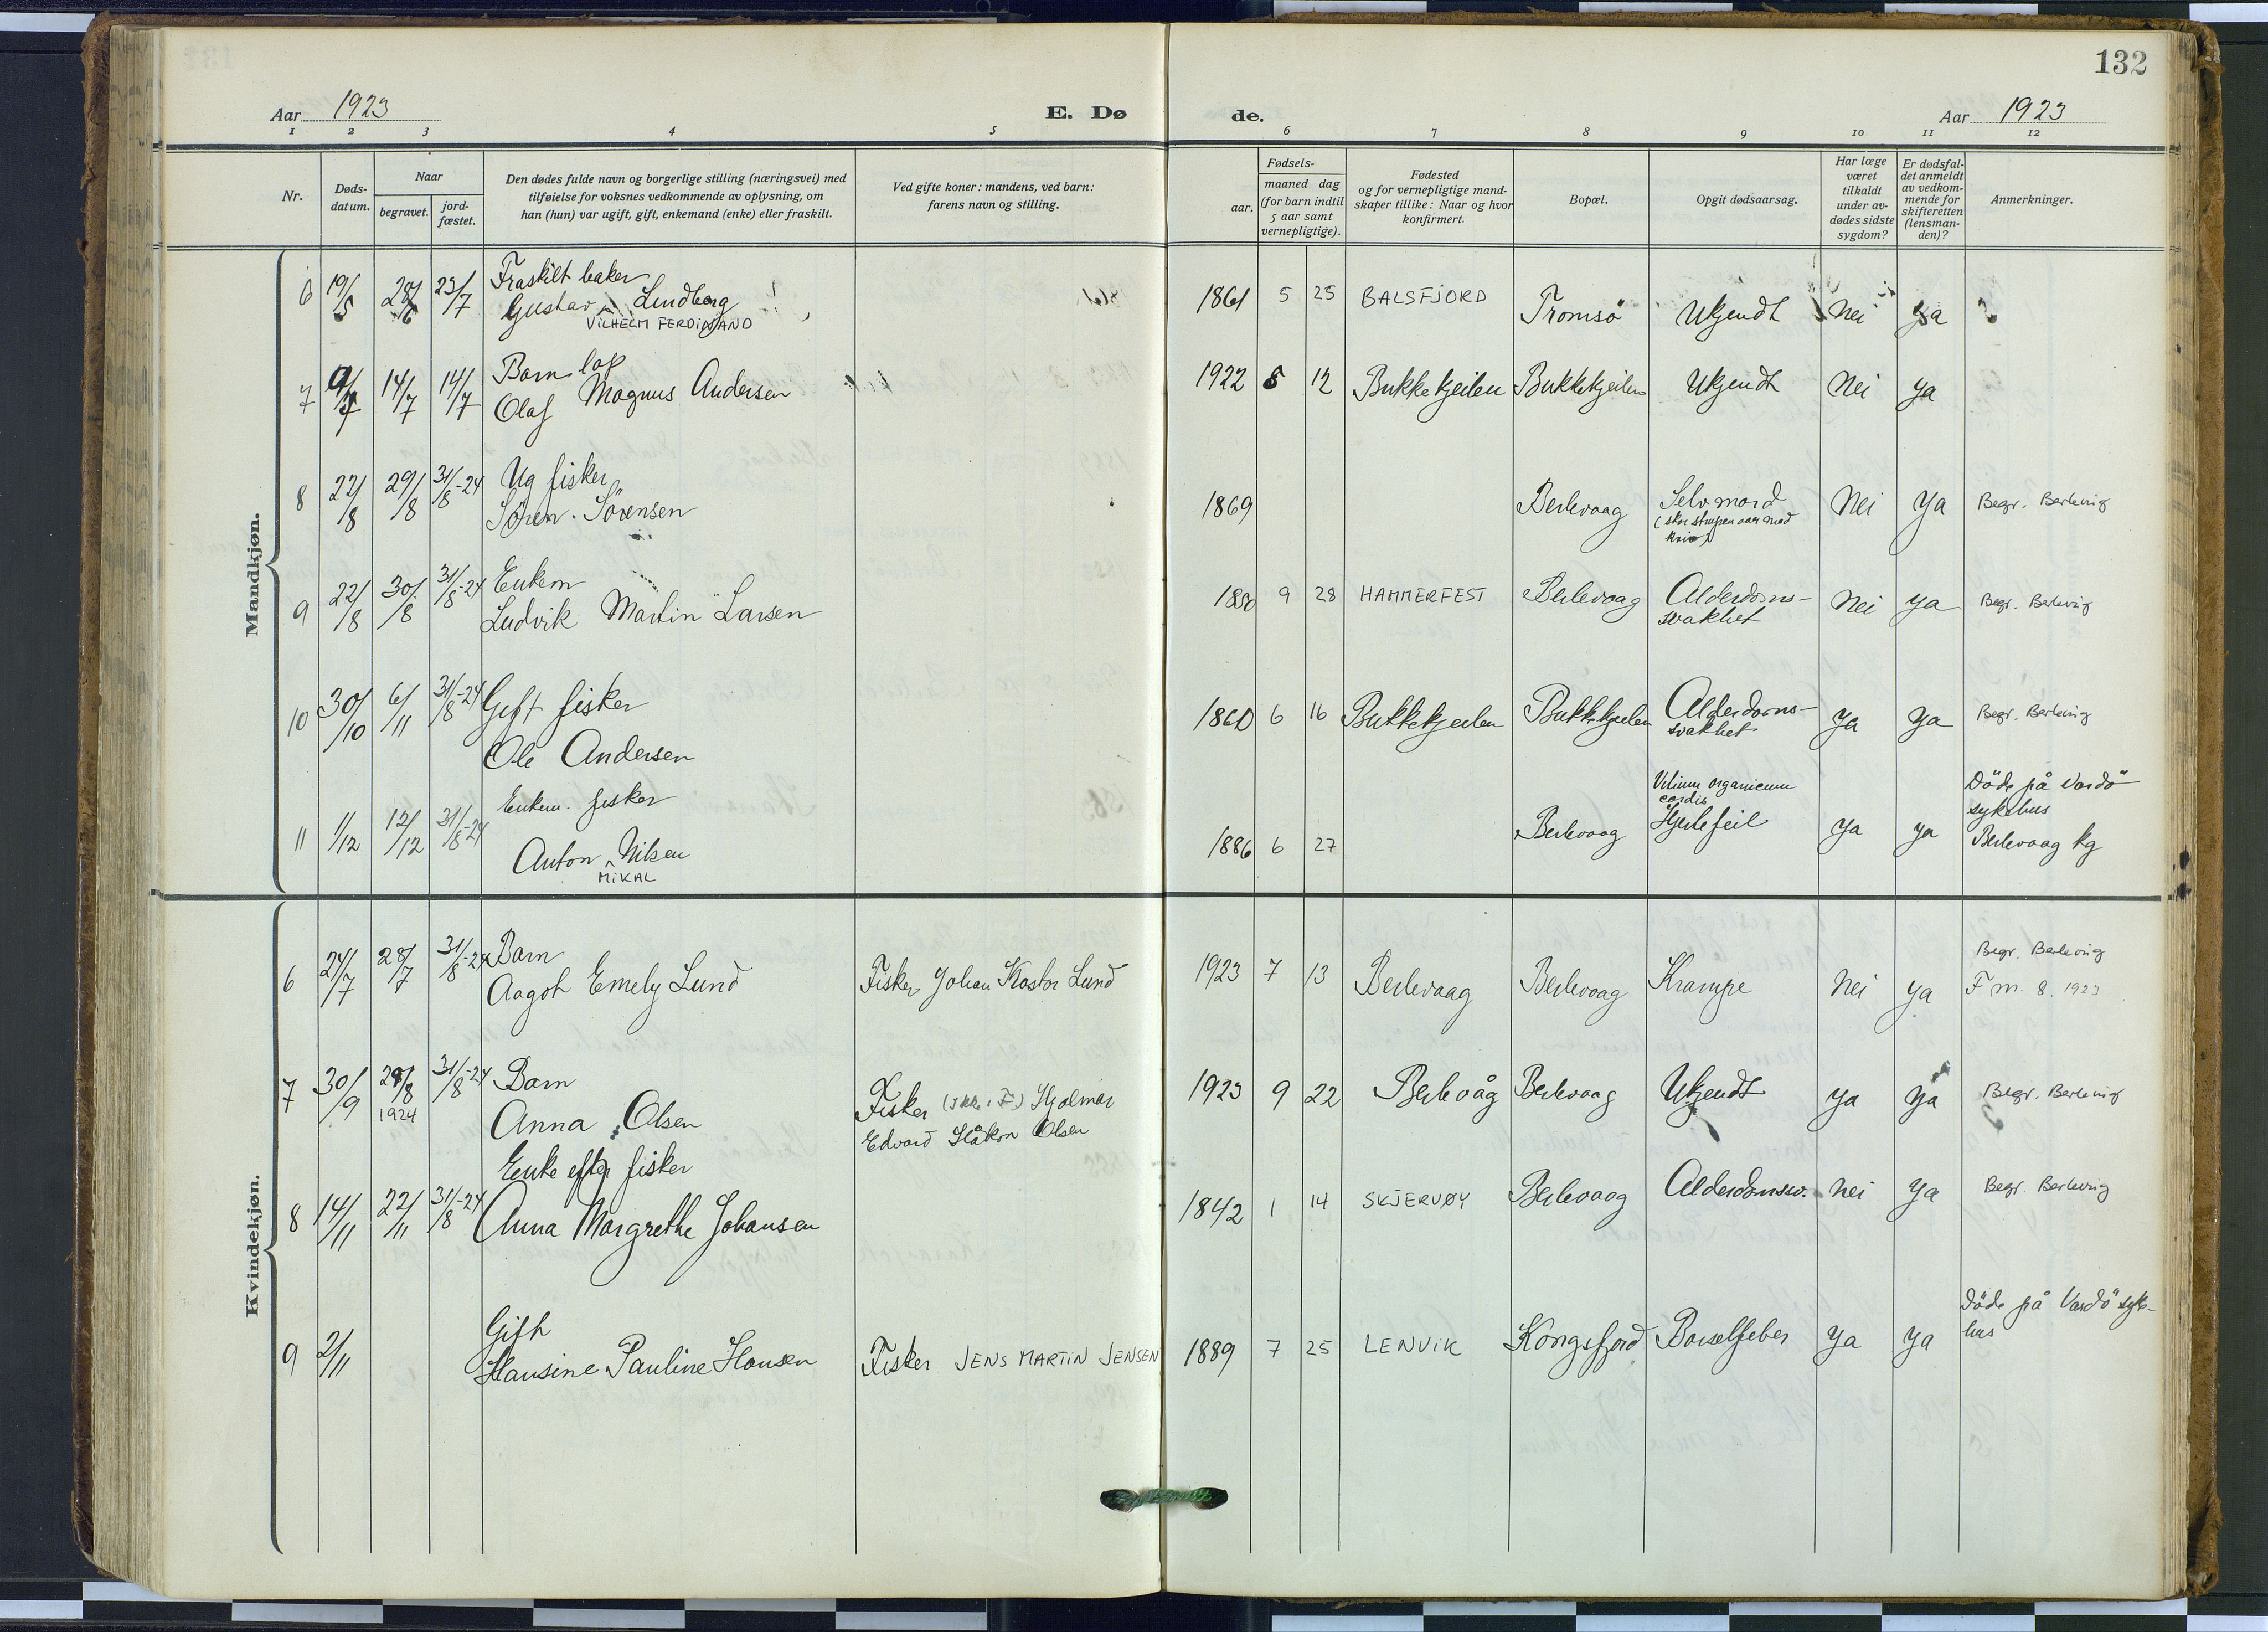 132
Aar 1923
E. Dø
de.
Aar 1923
1 2 3 4 5 6 7 8 9 10 11 12
Nr.
Døds-
datum.
Naar
begravet.
jord-
fæstet.
Den dødes fulde navn og borgerlige stilling (næringsvei) med
tilføielse for voksnes vedkommende av oplysning, om
han (hun) var ugift, gift, enkemand (enke) eller fraskilt.
Ved gifte koner: mandens, ved barn:
farens navn og stilling.
Fødsels-
aar.
maaned dag
(for barn indtil
5 aar samt
vernepligtige).
Fødested
og for vernepligtige mand-
skaper tillike: Naar og hvor
konfirmert.
Bopæl.
Opgit dødsaarsag.
Har læge
været
tilkaldt
under av-
dødes sidste
sygdom?
Er dødsfal-
det anmeldt
av vedkom-
mende for
skifteretten
(lensman-
den)?
Anmerkninger.
Mandkjøn.
Fraskilt baker
6 19/5 28/6 23/7 Gustav Lindberg 1861 5 25 BALSFJORD Tromsö Ukjendt Nei ya
VILHELM FERDINAND
Barn lap
7 14/7 14/7 Olaf Magnus Andersen 1922 5 12 Bukkekjeilen Bukkekjeilen Ukjendt Nei ya
Ug fisker
8 22/8 29/8 31/8-24 Sören Sörensen 1869 Berlevaag Selvmord Nei ya Begr. Berlevåg
Enkem
9 22/8 30/8 31/8-24 Ludvik Martin Larsen 9 28 HAMMERFEST Berlevaag Alderdoms- Nei ya Begr. Berlevåg
svakhet
Gift fisker
10 30/10 6/11 31/8-24 Ole Andersen 1860 6 16 Bukkekjeilen Bukkekjeilen Alderdoms- ya ya Begr. Berlevåg
svakhet
Enkem. fisker
Vitium organicum
cordis
Döde på Vardö
sykehus
11 1/12 12/12 31/8-24 Anton Nilsen 1886 6 27 Berlevaag Hjertefeil ya ya Berlevaag kg
MIKAL
Kvindekjøn.
Barn
Begr. Berlevåg
6 24/7 28/7 31/8-24 Aagot Emely Lund Fisker Johan Kastor Lund 1923 7 13 Berlevaag Berlevaag Krampe Nei ya F m. 8. 1923
Barn
7 30/9 28/8 1924 31/8-24 Anna Olsen Fisker Hjalmar 1923 9 22 Berlevåg Berlevaag Ukjendt ya ya Begr. Berlevåg
Edvard Håkon Olsen
Enke efter fisker
8 14/11 22/11 31/8-24 Anna Margrethe Johansen 1842 1 14 SKJERVØY Berlevaag Alderdomssv. nei ya Begr. Berlevåg
Gift
Döde på Vardö syke-
hus
9 2/11 Hansine Pauline Hansen Fisker JENS MARTIN JENSEN 1889 7 25 LENVIK Kongsfjord Barselfeber ya ya